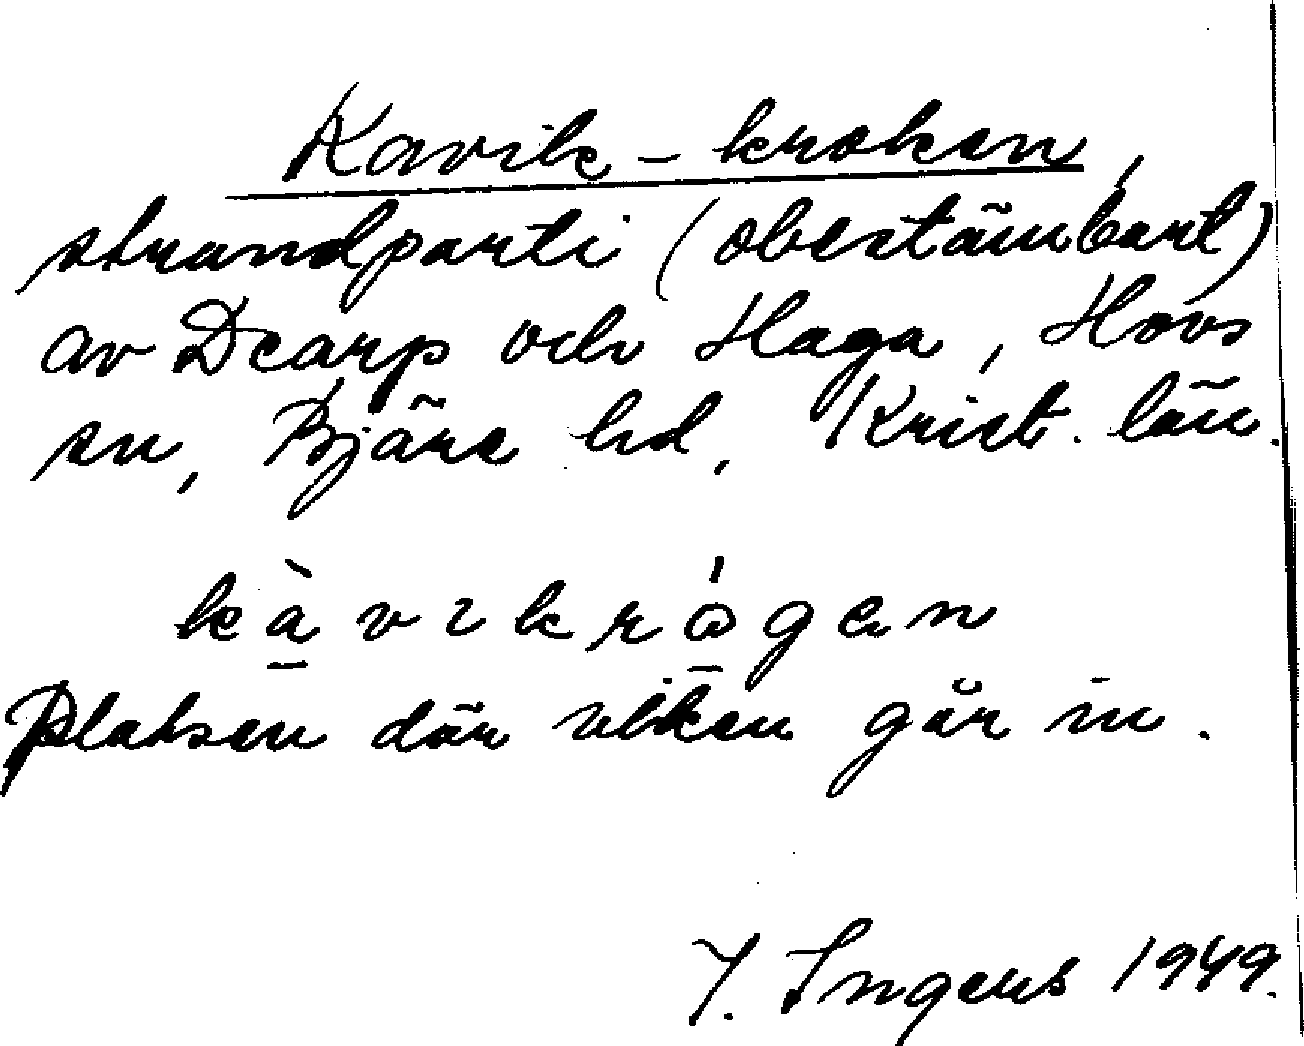 Kavik-kroken,
strandparti (obestämbart)
av Dearp och Haga, Hovs
sn, Bjäre hd, Krist. län.
kàvıkrógen
Platsen där viken går in.
I. Ingers 1949.